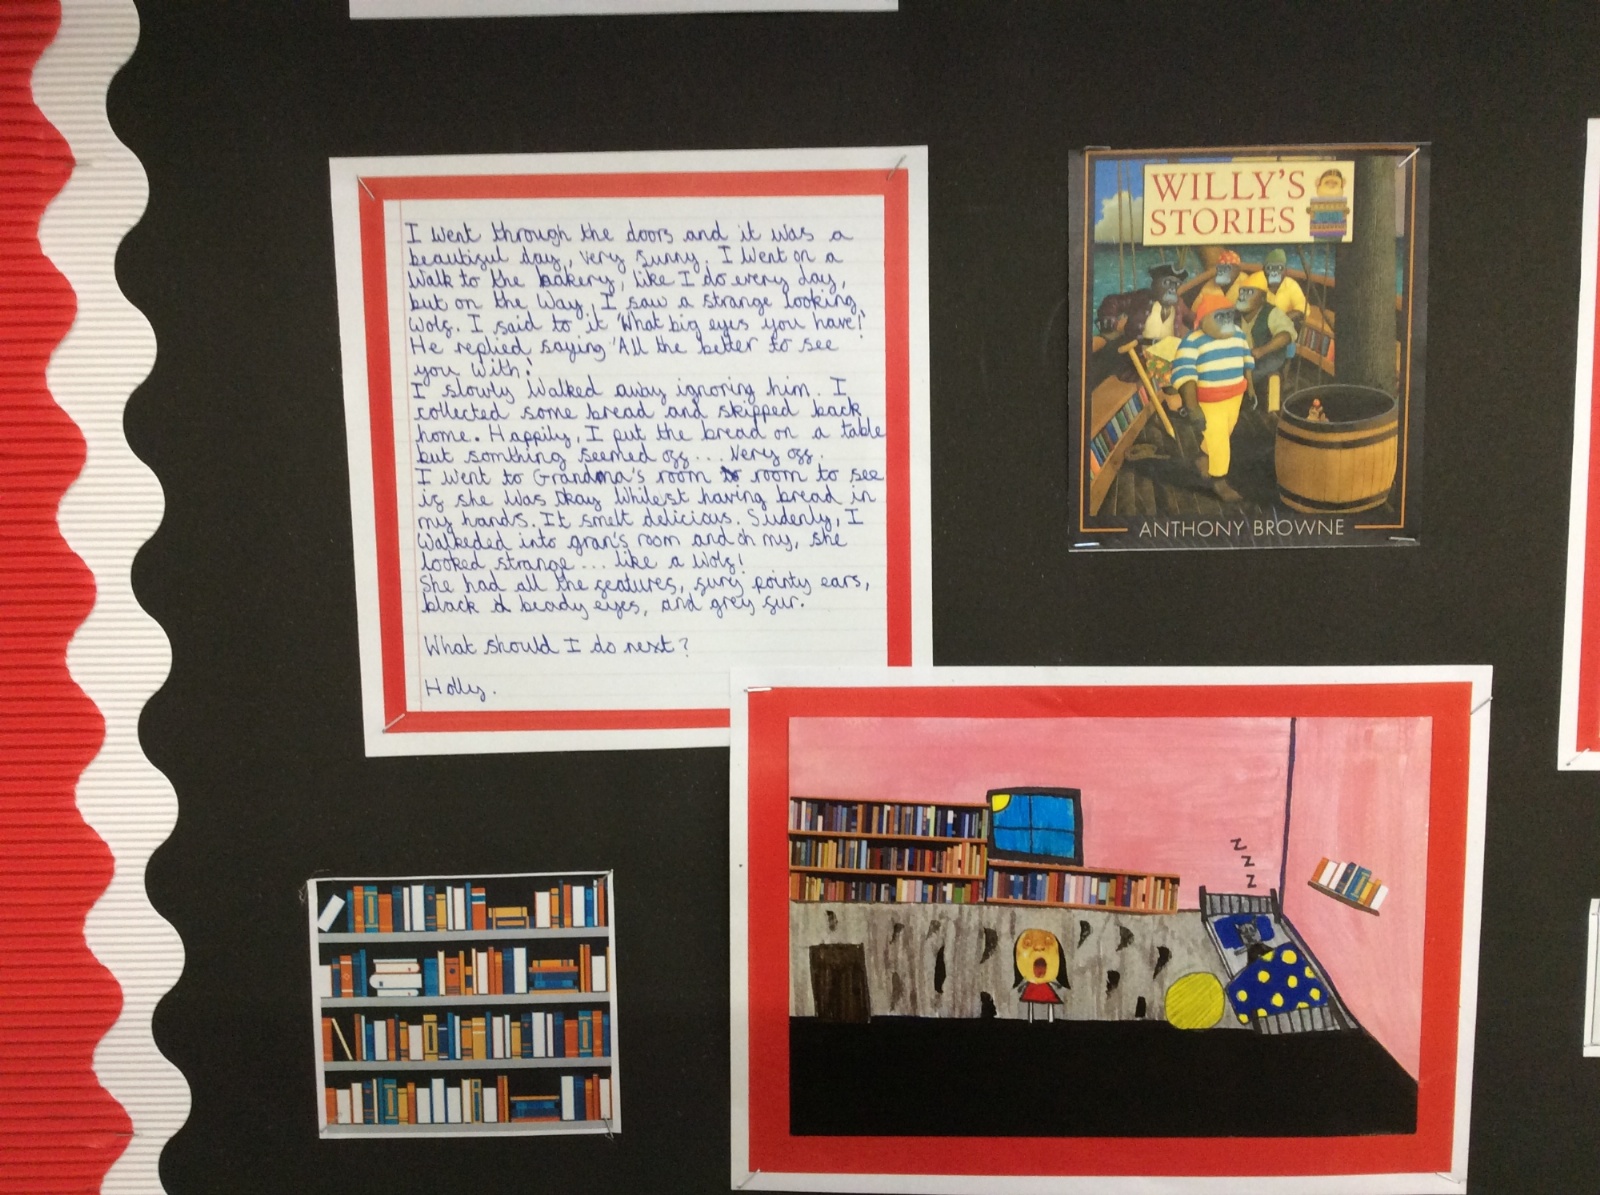 I went through the doors and it was a
beautiful day, very sunny. I went on a
walk to the bakery, like I do every day,
but on the way, I saw a strange looking
wolf. I said to it 'What big eyes you have!'
He replied saying 'All the better to see
you with!'
I slowly walked away ignoring him. I
collected some bread and skipped back
home. Happily, I put the bread on a table
but somthing seemed off... Very off.
I went to Grandma's room to room to see
if she was okay whilest having bread in
my hands. It smelt delicious. Sudenly, I
walkeded into gran's room and oh my, she
looked strange... like a wolf!
She had all the features, fury pointy ears,
black d beady eyes, and grey fur.
What should I do next?
Holly.
WILLY'S
STORIES
ANTHONY BROWNE
z
z
z